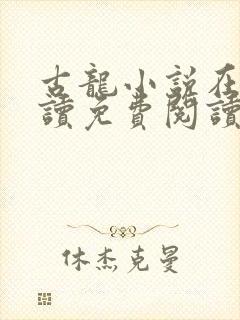 古龍小說在
讀免費閱讀
休杰克曼